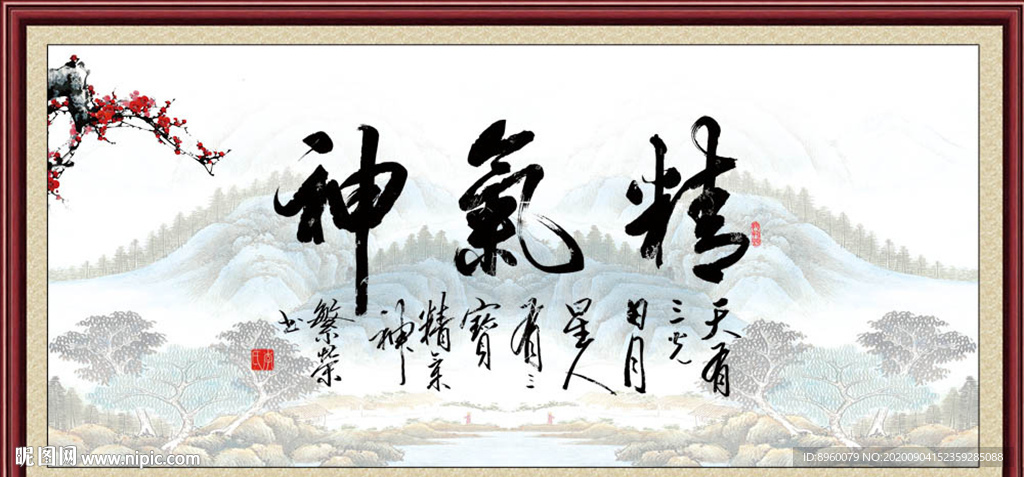 精氣神
天有
三光
日月
星人
有三
寶
精氣
神
繁榮
书
昵图网 www.nipic.com
ID:8960079 NO:20200904152359285088